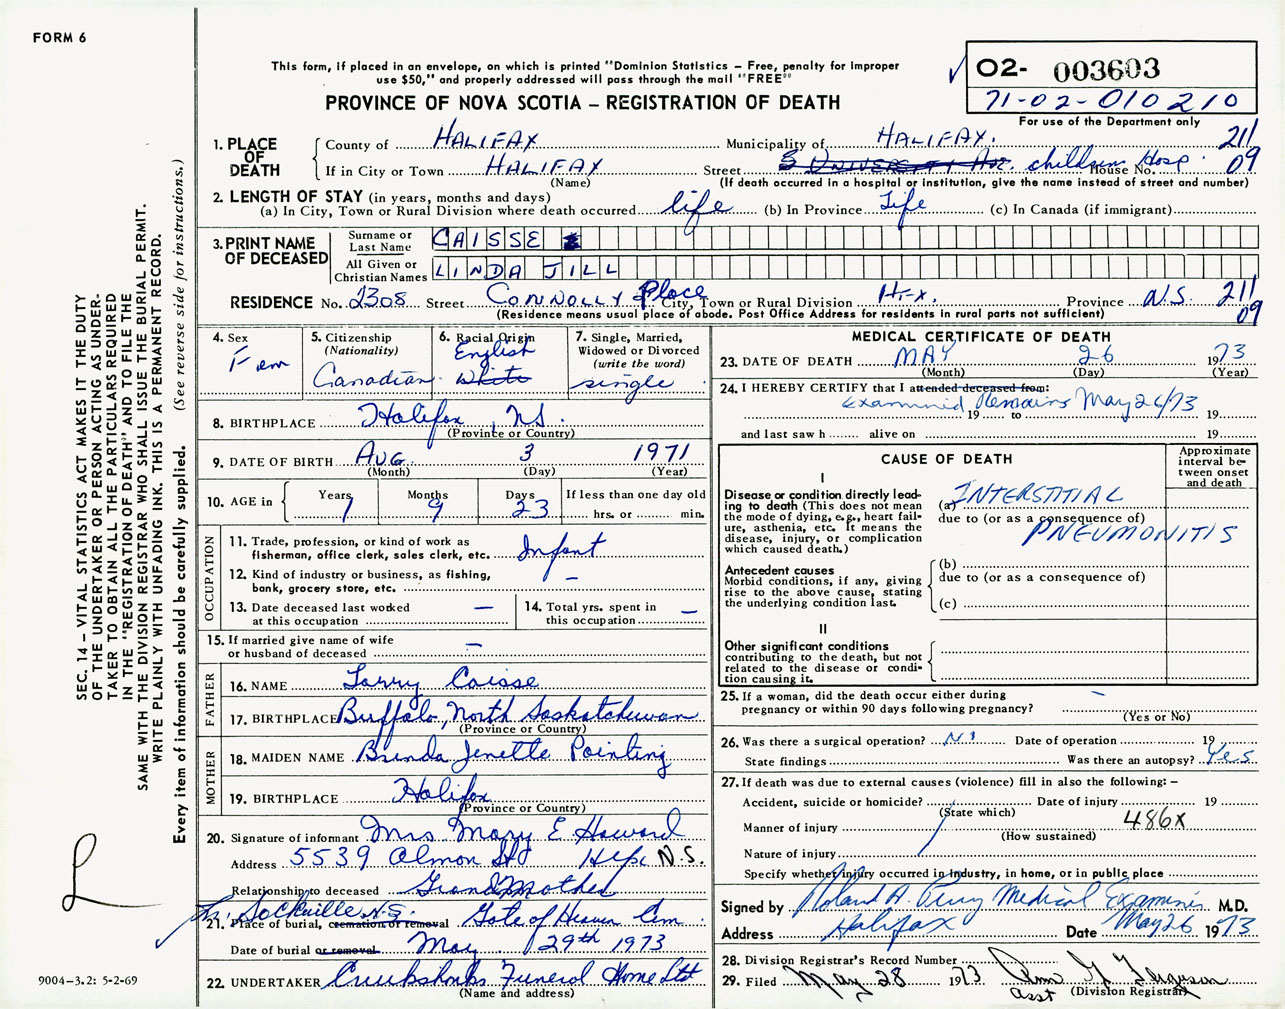 FORM 6
This form, if placed in an envelope, on which is printed "Dominion Statistics – Free, penalty for improper
use $50," and properly addressed will pass through the mail "FREE"
PROVINCE OF NOVA SCOTIA – REGISTRATION OF DEATH
O2- 003603
71-02-010210
For use of the Department only
1. PLACE OF DEATH
County of HALIFAX Municipality of HALIFAX. 211
If in City or Town HALIFAX Street 5 University Ave. childrens Hosp. House No. 09
(Name) (If death occurred in a hospital or institution, give the name instead of street and number)
2. LENGTH OF STAY (in years, months and days)
(a) In City, Town or Rural Division where death occurred life (b) In Province Life (c) In Canada (if immigrant)
3. PRINT NAME OF DECEASED
Surname or Last Name CAISSE
All Given or Christian Names LINDA JILL
RESIDENCE No. 2308 Street CONNOLLY Place City, Town or Rural Division H-x. Province N.S. 211
(Residence means usual place of abode. Post Office Address for residents in rural parts not sufficient) 09
4. Sex
Fem
5. Citizenship
(Nationality)
Canadian
6. Racial Origin
English
White
7. Single, Married,
Widowed or Divorced
(write the word)
single
8. BIRTHPLACE Halifax, NS.
(Province or Country)
9. DATE OF BIRTH AUG. 3 1971
(Month) (Day) (Year)
10. AGE in
Years Months Days If less than one day old
1 9 23 hrs. or min.
OCCUPATION
11. Trade, profession, or kind of work as
fisherman, office clerk, sales clerk, etc. Infant
12. Kind of industry or business, as fishing,
bank, grocery store, etc. –
13. Date deceased last worked
at this occupation –
14. Total yrs. spent in
this occupation –
15. If married give name of wife
or husband of deceased –
FATHER
16. NAME Larry Caisse
17. BIRTHPLACE Buffalo, North Saskatchewan
(Province or Country)
MOTHER
18. MAIDEN NAME Brenda Jenette Pointing
19. BIRTHPLACE Halifax
(Province or Country)
20. Signature of informant Mrs Mary E Howard
Address 5539 Almon St Hfx. N.S.
Relationship to deceased GrandMother
Sackville N.S.
21. Place of burial, cremation or removal Gate of Heaven Cem.
Date of burial or removal May 29th 1973
22. UNDERTAKER Cruikshanks Funeral Home Ltd
(Name and address)
MEDICAL CERTIFICATE OF DEATH
23. DATE OF DEATH MAY 26 1973
(Month) (Day) (Year)
24. I HEREBY CERTIFY that I attended deceased from:
Examined Remains May 26/73
19 to 19
and last saw h alive on 19
CAUSE OF DEATH
Approximate interval between onset and death
I
Disease or condition directly leading to death (This does not mean the mode of dying, e.g., heart failure, asthenia, etc. It means the disease, injury, or complication which caused death.)
(a) INTERSTITIAL
due to (or as a consequence of)
PNEUMONITIS
Antecedent causes
Morbid conditions, if any, giving rise to the above cause, stating the underlying condition last.
(b)
due to (or as a consequence of)
(c)
II
Other significant conditions
contributing to the death, but not related to the disease or condition causing it.
25. If a woman, did the death occur either during
pregnancy or within 90 days following pregnancy? –
(Yes or No)
26. Was there a surgical operation? Date of operation 19
State findings Was there an autopsy? Yes
27. If death was due to external causes (violence) fill in also the following: –
Accident, suicide or homicide? Date of injury 19
(State which)
Manner of injury 486x
(How sustained)
Nature of injury
Specify whether injury occurred in industry, in home, or in public place
Signed by Roland A. Perry Medical Examiner M.D.
Address Halifax Date May 26 1973
28. Division Registrar's Record Number
29. Filed May 28 1973 Ferguson
Asst (Division Registrar)
SEC. 14 – VITAL STATISTICS ACT MAKES IT THE DUTY
OF THE UNDERTAKER OR PERSON ACTING AS UNDER-
TAKER TO OBTAIN ALL THE PARTICULARS REQUIRED
IN THE "REGISTRATION OF DEATH" AND TO FILE THE
SAME WITH THE DIVISION REGISTRAR WHO SHALL ISSUE THE BURIAL PERMIT.
WRITE PLAINLY WITH UNFADING INK. THIS IS A PERMANENT RECORD.
Every item of information should be carefully supplied. (See reverse side for instructions.)
L
9004–3.2: 5-2-69